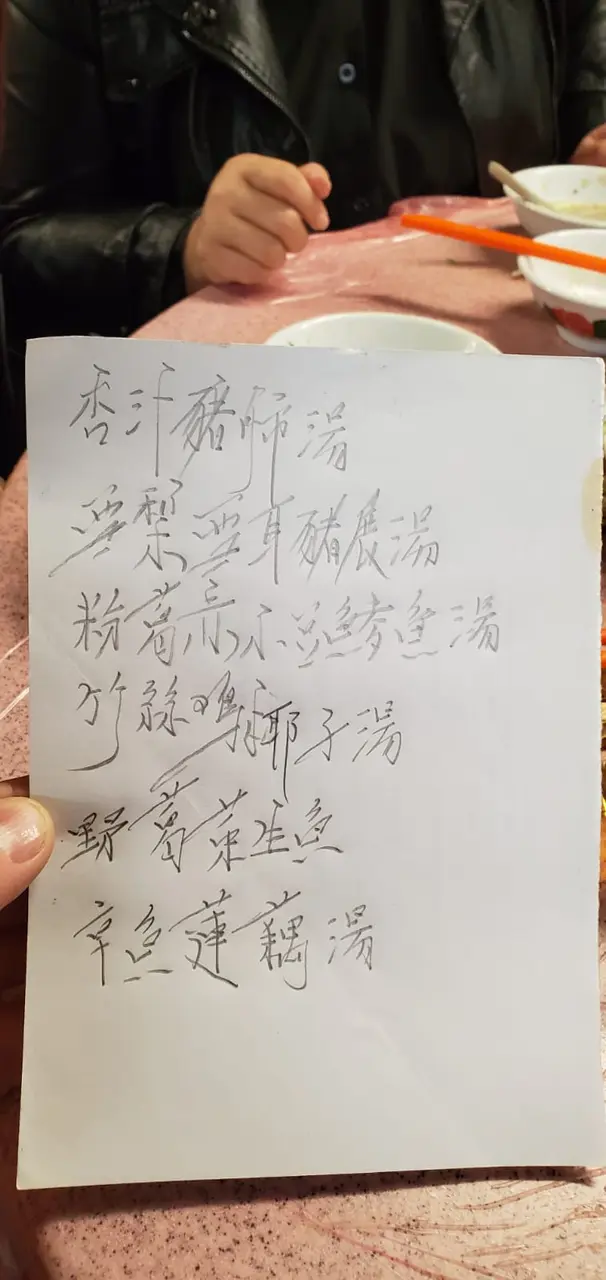 杏汁豬肺湯
雪梨雪耳豬展湯
粉葛赤小豆鯪魚湯
竹絲鷄椰子湯
野葛菜生魚
章魚蓮藕湯